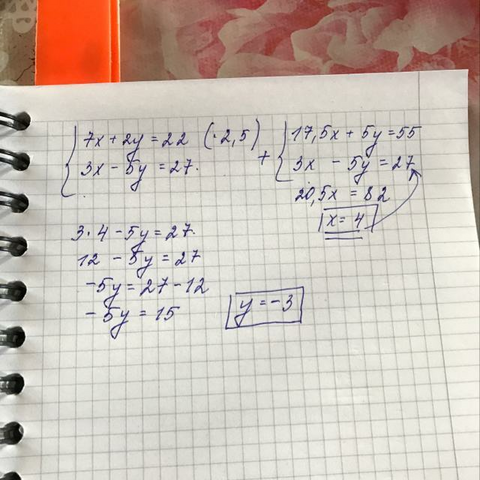 7x + 2y = 22 (·2,5)
3x - 5y = 27.
+
17,5x + 5y = 55
3x - 5y = 27
20,5x = 82
x = 4
3·4 - 5y = 27.
12 - 5y = 27
-5y = 27 - 12
-5y = 15
y = -3